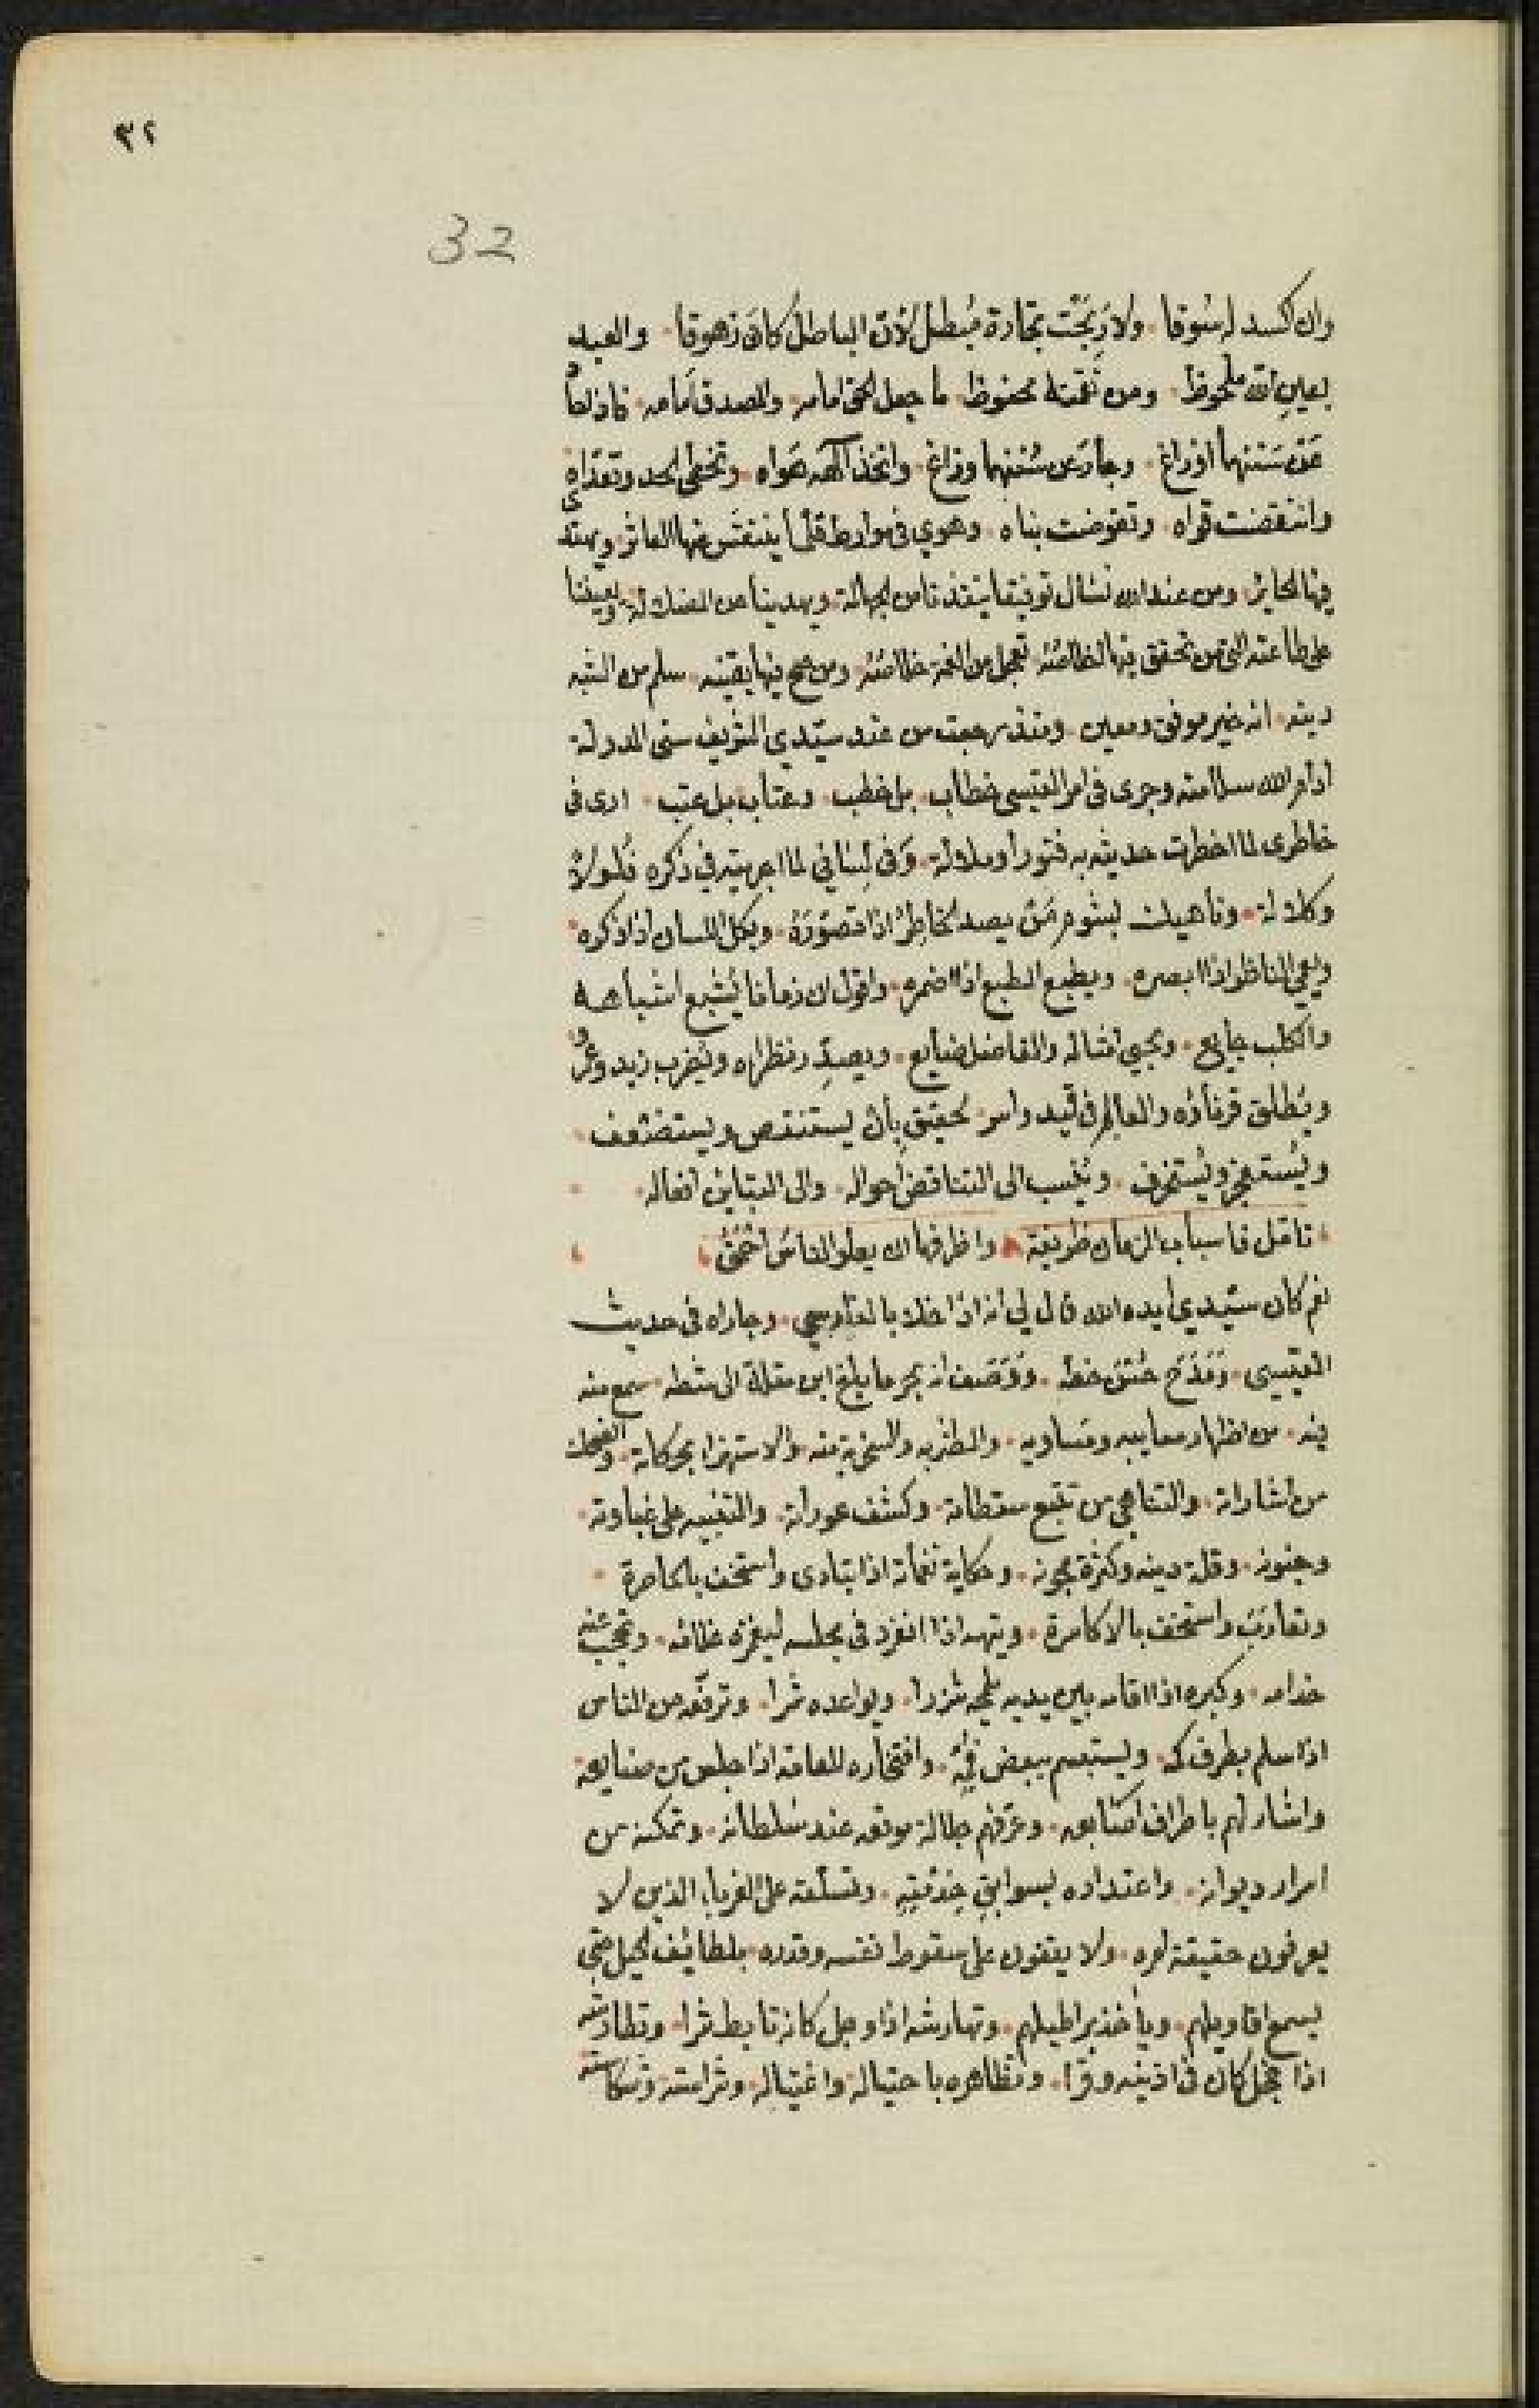 ٣٢
32
وان اكسد له سُوقا ولا رَبَحَت تجارة مُبطل لأن الباطل كانَ زهوقا والعبد
بعين الله ملحوظ ومن نقمته محفوظ ما جعل الحق امامه والصدق أمامه فاذا
عن سننهما اوزاغ وجار عن سُننهما وزاغ واتخذ الهه هَواه وتخطى الحد وتعداه
وانتقضت قواه وتقوضت بناه وهوي في موارط قلما ينتفس منها العاثر ويهتدى
فيها الحاير ومن عند الله نسال توفيقا ينقذنا من الجهالة ويهدينا من الضلالة ويعيننا
على طاعته التي من تحقق فيها خلاصته تعجل من الغمة خلاصُه ومن صح فيها يقينه سلم من الشبه
دينه انه خير موفق ومعين ومنذ رجعت من عند سيّدي الشريف سنى الدولة
أدام الله سلامته وجرى في امر القيسى خطاب بل خطب وعتاب بل عتب ارى في
خاطرى لما اخطرت حديثه به فتورا وملالة وفى لساني لما اجريته في ذكره فلولاً
وكلالة وناهيك بشوم مَن يصد الخاطرُ اذا تصوّرَهُ ويكل اللسان اذا ذكره
ويعي الناظر اذا ابصره ويطبع الطبع اذا اضمره واقول ان زمانا يُشبع اشباهه
والكلب جايع ويحيي امثاله والفاضل ضايع ويصدّر نظراه ويُضرب زيد وعمرو
ويُطلق قرناؤه والعالم في قيد واسر لحقيق بأن يستنقص ويستضعف
ويُستعجز ويُستخرف ويُنسب الى التناقض احواله والى التباين افعاله
تامل فاسباب الزمان ظريفة واظرفها ان يعلو الناسَ احمقُ
نعم كان سيّدي أيده الله قال لي انه اذا خلا بالقادسي وجاراه في حديث
القيسى ومَدَح حُسْن خطه ووصف انه بحر ما بلغ ابن مقلة الى شطه سمع منه
فيه من اظهار معايبه ومساويه والطنز به والسخرية منه والاستهزا بحركاته والضحك
من اشاراته والتناهي من تتبع سقطاته وكشف عوراته والتنبيه على غباوته
وجنونه وقلة دينه وكثرة مجونه وحكاية نغماته اذا تبادى واستخف بالحاضرة
وتقارَبَ واستخف بالاكاسرة وتيهه اذا انفرد في مجلسه ليغمزه غلامه وتحجب عنه
خدامه وكبره اذا اقامه بين يديه يلمحه شزرا ويواعده شرا وترفعه عن الناس
اذا سلم بطرف كمه ويستبسم ببعض فمه وافتخاره للعامة اذا جلس من صنايعه
واشار لهم باطراف اصابعه وعرّفهم جلالة موقعه عند سُلطانه وتمكنه من
اسرار ديوانه واعتداده بسوابق خدمتِهِ وتسلّطه على الغرباء الذين لا
يعرفون حقيقة امره ولا يقفون على سقوط نفسه وقدره بلطايف الحيل حتى
يسمع اقاويلهم وياخذ براطيلهم وتهارشه اذا وجل كانه تابط شرا وتطارشه
اذا خجل كان في اذنيه وقرا وتظاهره باحتياله واغتياله وشراسته وشكاسته